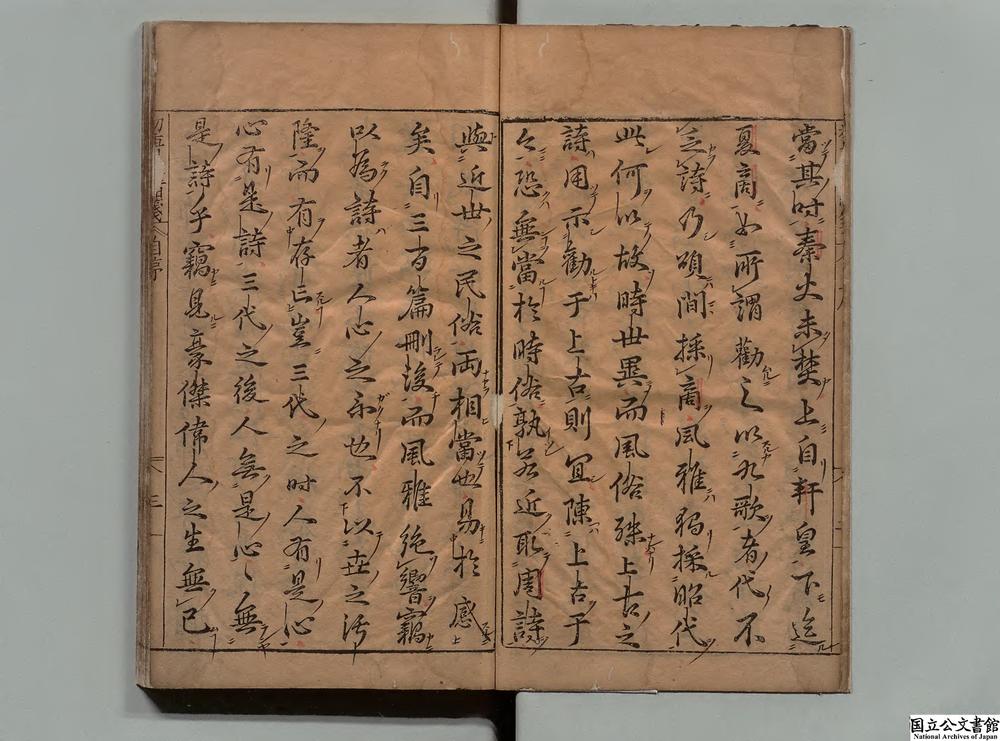 當其時秦火未焚上自軒皇下迄
夏商如所謂勸之以九歌者代不
乏詩乃頌間採商風雅獨採昭代
此何以故時世異而風俗殊上古之
詩用示勸于上古則宜陳上古于
今恐無當於時俗孰若近取周詩
與近世之民俗兩相當也易於感
矣自三百篇刪後而風雅絶響竊
以為詩者人心之樂也不以世之汚
隆而有存亡豈三代之時人有是心
心有是詩三代之後人無是心心無
是詩乎竊見豪傑偉人之生無已
自序
三
国立公文書館
National Archives of Japan